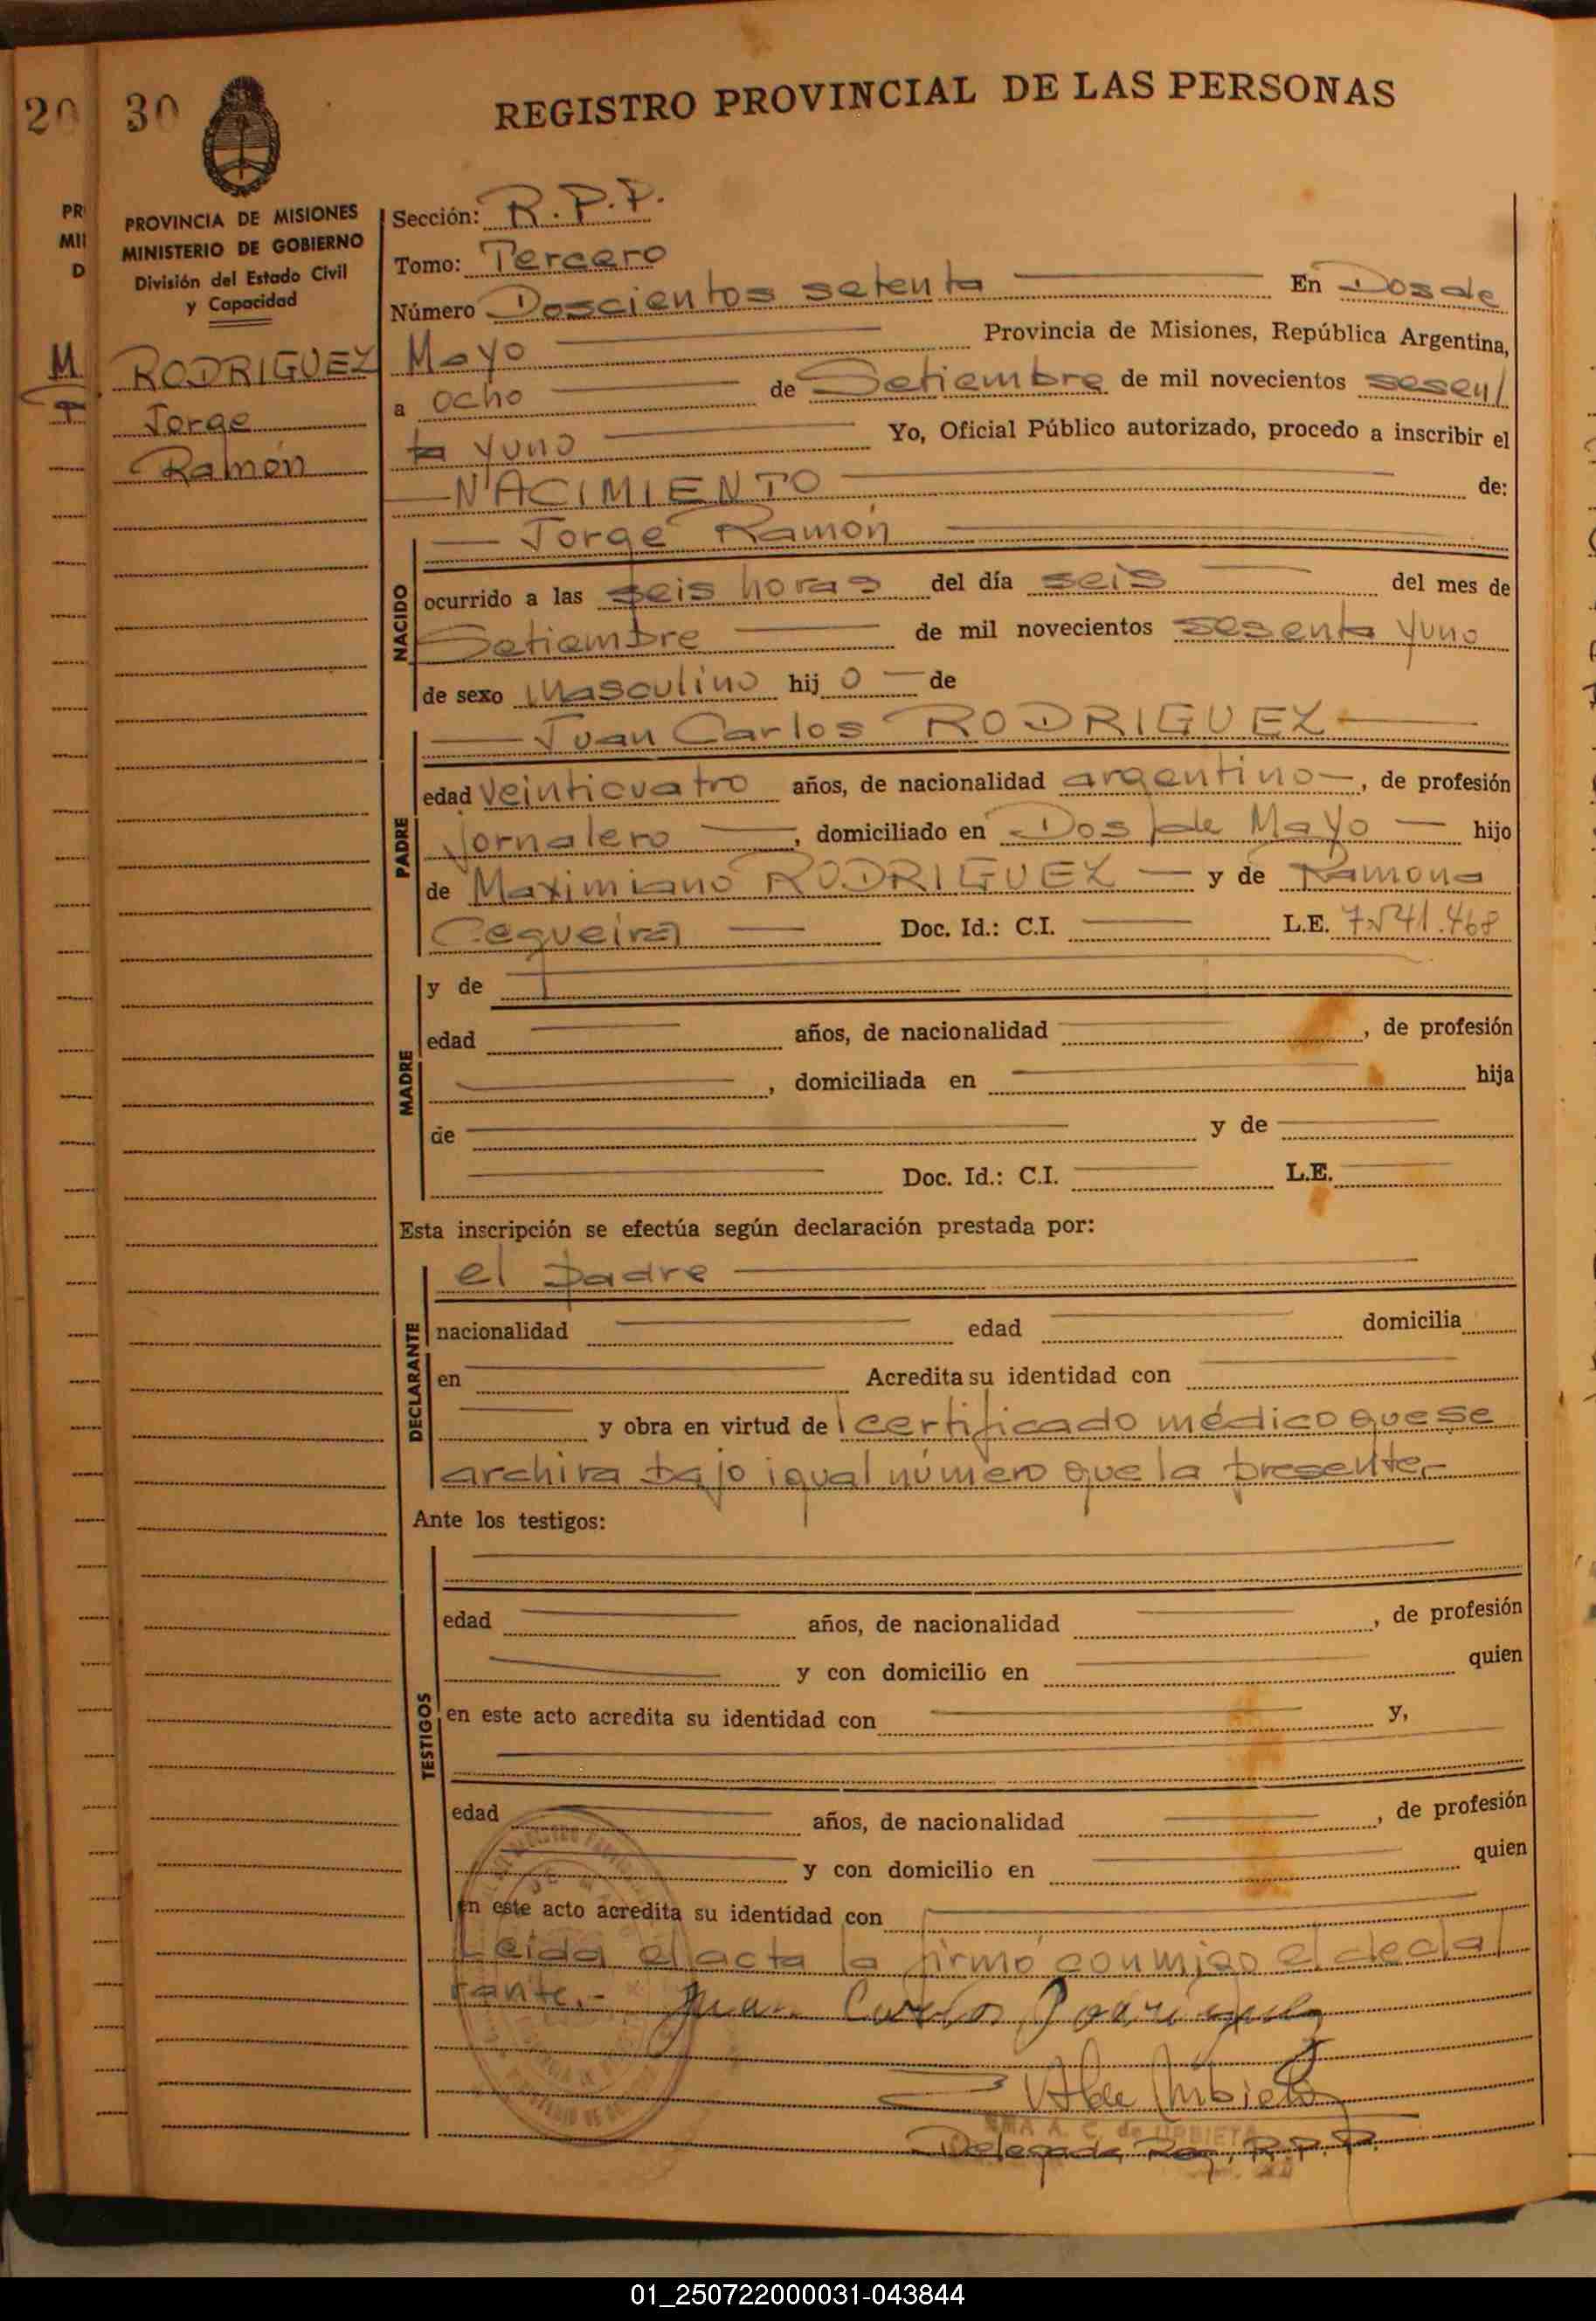 20 30
REGISTRO PROVINCIAL DE LAS PERSONAS
PR
MII
D
PROVINCIA DE MISIONES
MINISTERIO DE GOBIERNO
División del Estado Civil
y Capacidad
M
RODRIGUEZ
Jorge
Ramón
Sección: R.P.P.
Tomo: Tercero
Número Doscientos setenta En Dos de
Mayo Provincia de Misiones, República Argentina,
a ocho de Setiembre de mil novecientos sesen/
ta y uno Yo, Oficial Público autorizado, procedo a inscribir el
NACIMIENTO de:
NACIDO
Jorge Ramón
ocurrido a las seis horas del día seis del mes de
Setiembre de mil novecientos sesenta y uno
de sexo Masculino hij o de
PADRE
Juan Carlos RODRIGUEZ
edad veinticuatro años, de nacionalidad argentino, de profesión
Jornalero, domiciliado en Dos de Mayo hijo
de Maximiano RODRIGUEZ y de Ramona
Cequeira Doc. Id.: C.I. L.E. 7.541.468
MADRE
y de
edad años, de nacionalidad , de profesión
, domiciliada en hija
de y de
Doc. Id.: C.I. L.E.
Esta inscripción se efectúa según declaración prestada por:
DECLARANTE
el padre
nacionalidad edad domicilia
en Acredita su identidad con
y obra en virtud de certificado médico que se
archiva bajo igual número que la presente.-
Ante los testigos:
TESTIGOS
edad años, de nacionalidad , de profesión
y con domicilio en quien
en este acto acredita su identidad con y,
edad años, de nacionalidad , de profesión
y con domicilio en quien
en este acto acredita su identidad con
Leida el acta la firmó conmigo el decla/
rante.- Juan Carlos Rodriguez
A. C. de URBIETA
Delegada R.P.P.
01_250722000031-043844